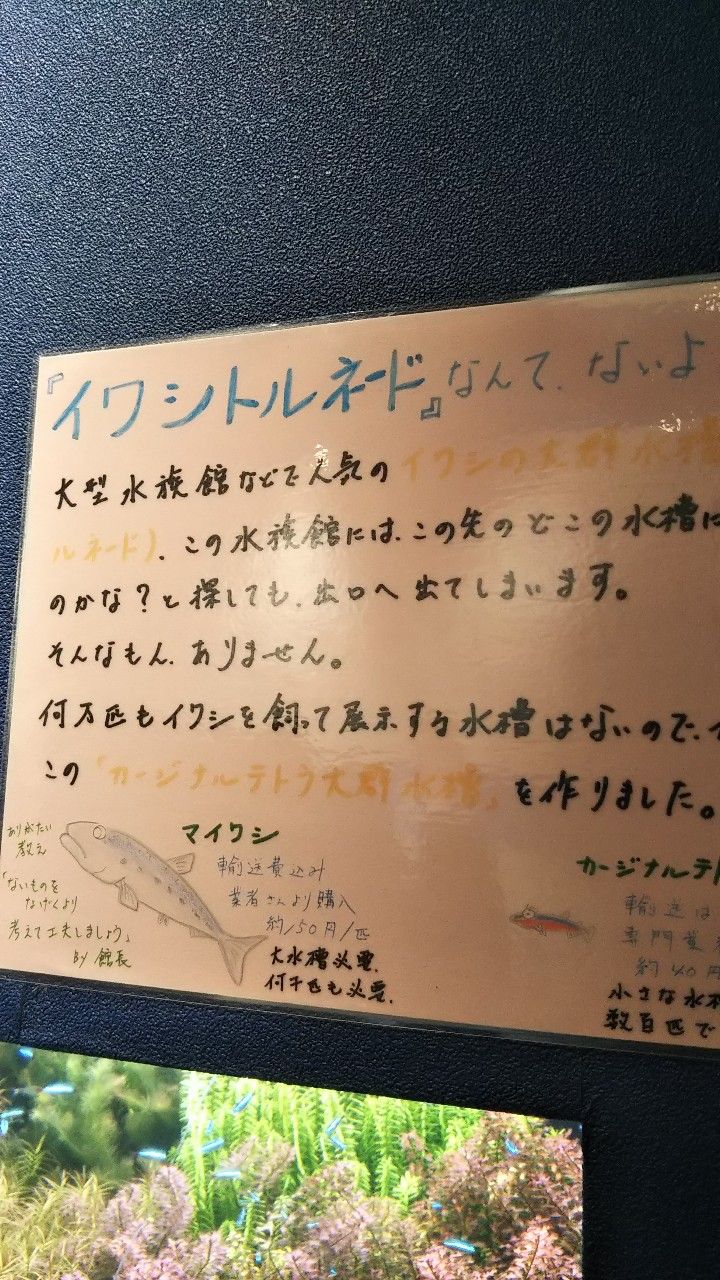 『イワシトルネード』なんて、ないよ
大型水族館などで人気のイワシの大群水槽
ルネード)、この水族館には、この先のどこの水槽に
のかな？と探しても、出口へ出てしまいます。
そんなもん、ありません。
何万匹もイワシを飼って展示する水槽はないので、
この「カージナルテトラ大群水槽」を作りました。
ありがたい
教え
「ないものを
なげくより
考えて工夫しましょう」
by 館長
マイワシ
輸送費込み
業者さんより購入
約150円/匹
大水槽必要、
何千匹も必要、
カージナルテト
輸送は
専門業
約40円
小さな水
数百匹で